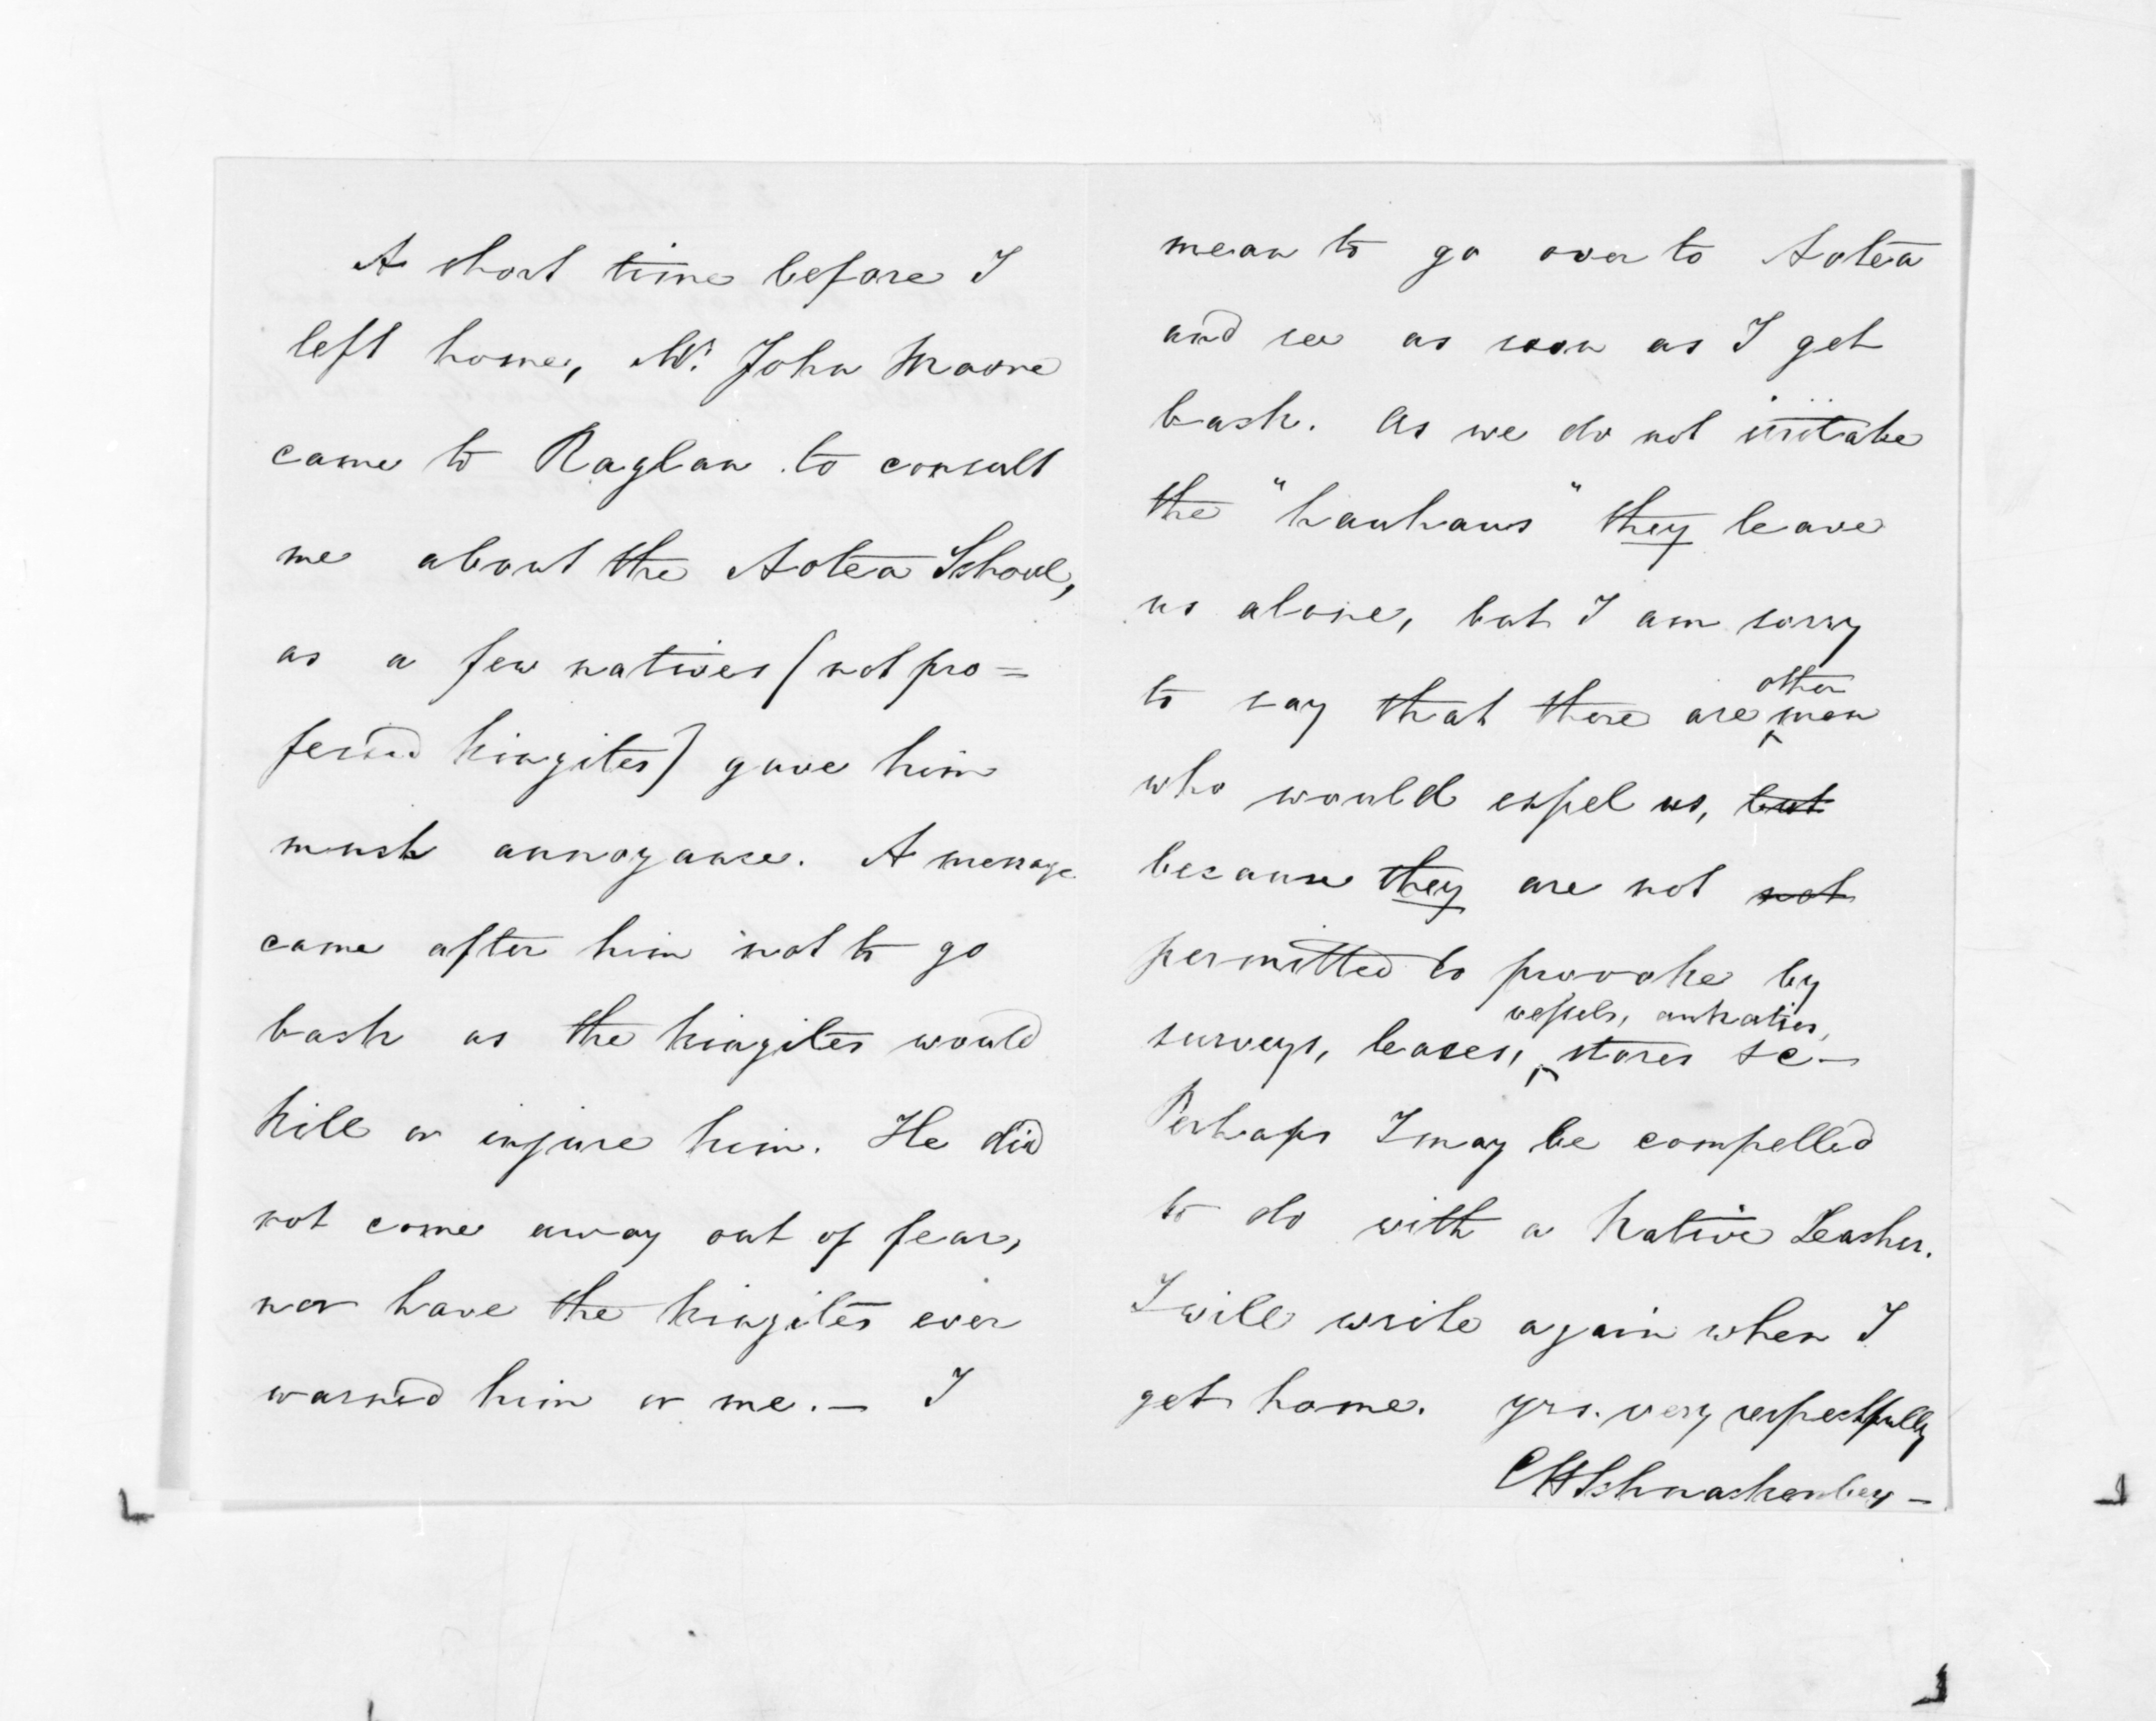 A short time before I
left home, Mr. John Moore
came to Raglan to consult
me about the Aotea School,
as a few natives (not pro=
fessed kingites) gave him
much annoyance. A message
came after him not to go
back as the kingites would
kill or injure him. He did
not come away out of fear,
nor have the kingites ever
warned him or me. — I
mean to go over to Aotea
and see as soon as I get
back. As we do not irritate
the "hauhaus" they leave
us alone, but I am sorry
to say that there are other men
who would expel us, but
because they are not not
permitted to provoke by
surveys, leases, vessels, aukaties, stores &c —
Perhaps I may be compelled
to do with a Native Teacher.
I will write again when I
get home. yrs. very respectfully
CHSchnackenberg —